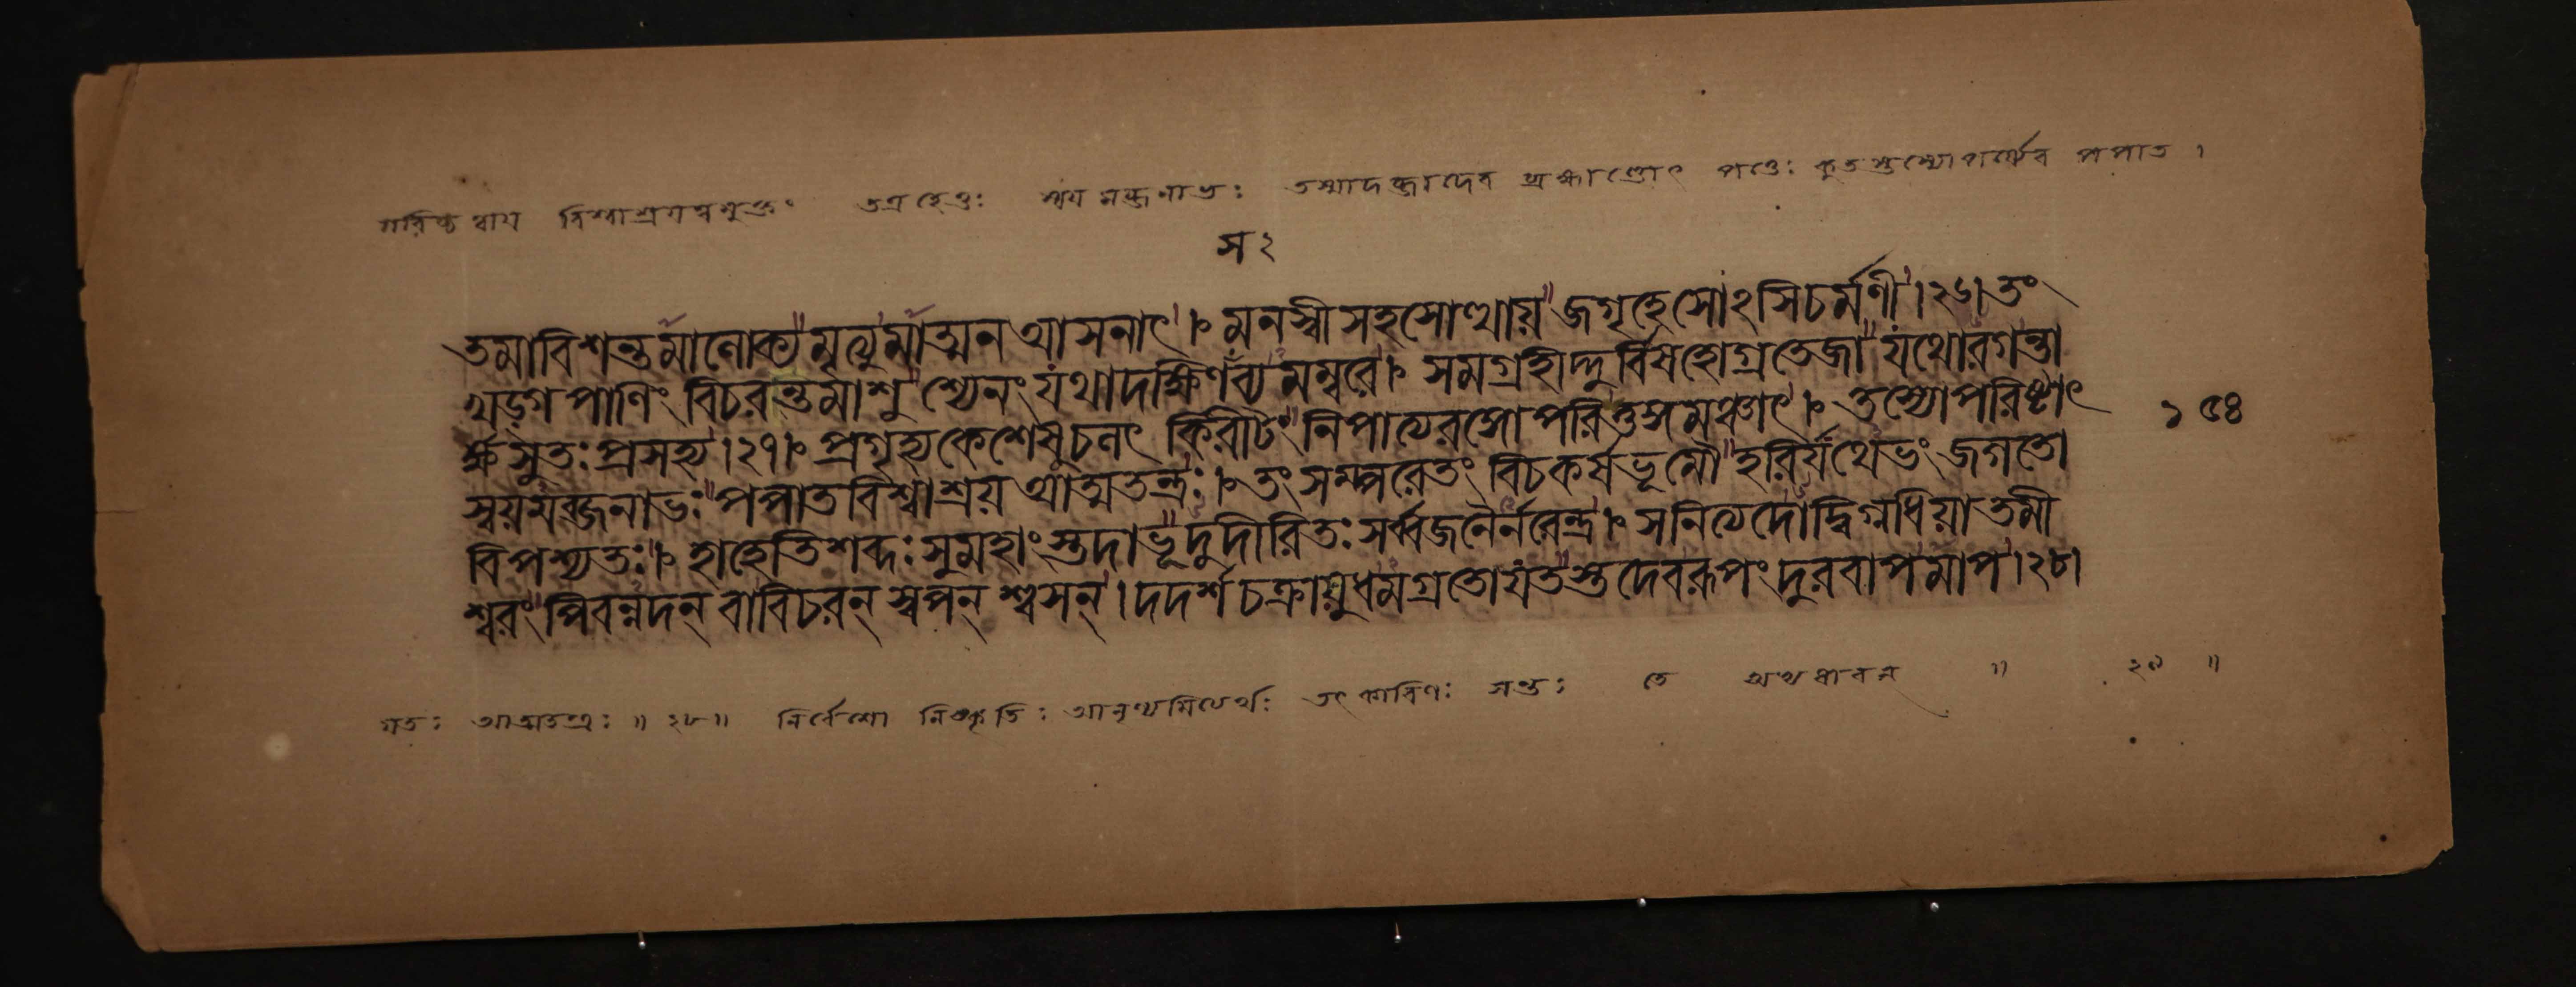 গরিষ্ঠত্বায় বিশ্বাশ্রয়ত্বমুক্তং তত্রহেতুঃ স্বয়মব্জনাভঃ তস্মাদব্জাদেব ব্রহ্মাণ্ডোৎ পত্তেঃ কুতস্তস্যোপর্য্যেব পপাত ।
স ২
তমাবিশন্তমালোক্য মৃত্যুমাত্মন আসনাৎ । মনস্বী সহসোত্থায় জগৃহে সোঽসিচর্মণী । ২৬। তং
খড়্গপাণিং বিচরন্তমাশু শ্যেনং যথা দক্ষিণসব্যমম্বরে । সমগ্রহীদ্দুর্বিষহোগ্রতেজা যথোরগন্তা
র্ক্ষসুতঃ প্রসহ্য । ২৭। প্রগৃহ্য কেশেষু চলৎ কিরীটং নিপাত্য রঙ্গোপরি তুঙ্গমঞ্চাৎ । তস্যোপরিষ্টাৎ
স্বয়মব্জনাভঃ পপাত বিশ্বাশ্রয় আত্মতন্ত্রঃ । তং সম্পরেতং বিচকর্ষ ভূমৌ হরির্যথেভং জগতো
বিপশ্যতঃ । হাহেতি শব্দঃ সুমহাংস্তদাভূদুদীরিতঃ সর্ব্বজনৈর্নরেন্দ্র । স নিত্যদোদ্বিগ্নধিয়া তমী
শ্বরং পিবন্নদন্ বা বিচরন্ স্বপন্ শ্বসন্ । দদর্শ চক্রায়ুধমগ্রতো যতস্তদেব রূপং দুরবাপমাপ । ২৮।
১৫৪
যতঃ আত্মতন্ত্রঃ ॥ ২৮॥ নির্বেশো নিষ্কৃতিঃ আনৃণ্যমিত্যর্থঃ তৎ কারিণঃ সন্তঃ তে অথধাবন ॥ ২৯ ॥